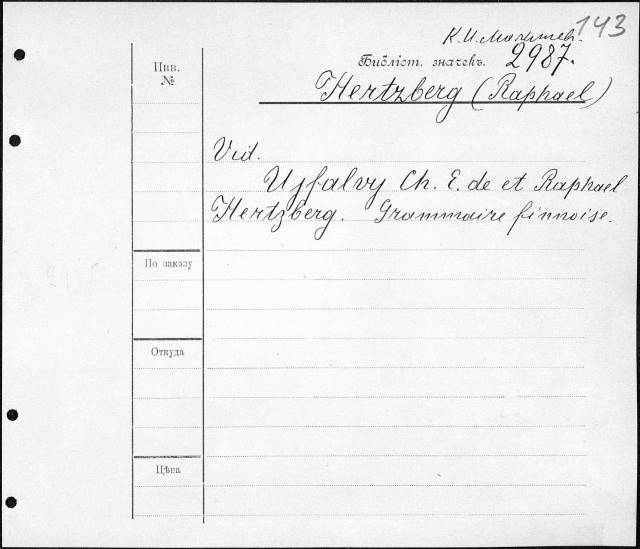 143
К. И.
Библіот. значекъ. 2987.
Инв.
№
Hertzberg (Raphael)
Vid.
Ujfalvy Ch. E. de et Raphael
Hertzberg. Grammaire finnoise.
По заказу
Откуда
Цѣна